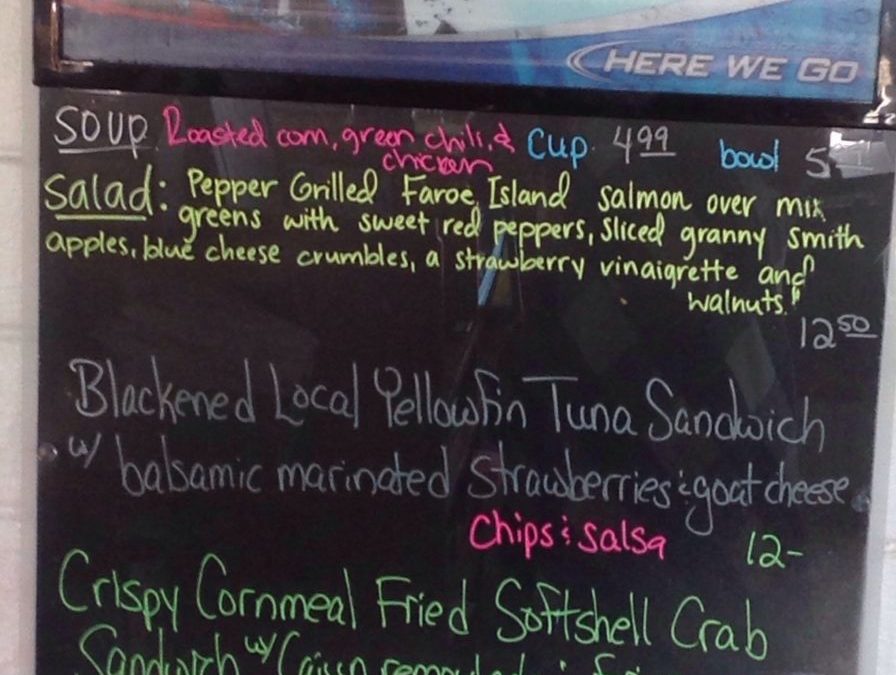 HERE WE GO
SOUP Roasted corn, green chili, & Cup 4.99 bowl 5
chicken
Salad: Pepper Grilled Faroe Island salmon over mix
greens with sweet red peppers, sliced granny smith
apples, blue cheese crumbles, a strawberry vinaigrette and
walnuts."
12.50
Blackened Local Yellowfin Tuna Sandwich
w/ balsamic marinated strawberries & goat cheese
Chips & salsa 12-
Crispy Cornmeal Fried Softshell Crab
Sandwich w/ Cajun